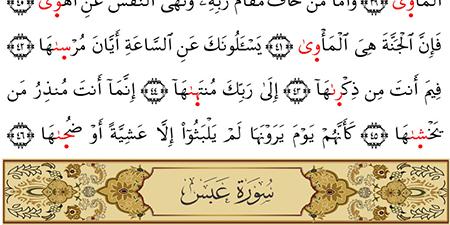 ٱلْمَأْوَىٰ ﴿٣٩﴾ وَأَمَّا مَنْ خَافَ مَقَامَ رَبِّهِۦ وَنَهَى ٱلنَّفْسَ عَنِ ٱلْهَوَىٰ ﴿٤٠﴾
فَإِنَّ ٱلْجَنَّةَ هِىَ ٱلْمَأْوَىٰ ﴿٤١﴾ يَسْـَٔلُونَكَ عَنِ ٱلسَّاعَةِ أَيَّانَ مُرْسَىٰهَا ﴿٤٢﴾
فِيمَ أَنتَ مِن ذِكْرَىٰهَآ ﴿٤٣﴾ إِلَىٰ رَبِّكَ مُنتَهَىٰهَآ ﴿٤٤﴾ إِنَّمَآ أَنتَ مُنذِرُ مَن
يَخْشَىٰهَا ﴿٤٥﴾ كَأَنَّهُمْ يَوْمَ يَرَوْنَهَا لَمْ يَلْبَثُوٓا۟ إِلَّا عَشِيَّةً أَوْ ضُحَىٰهَا ﴿٤٦﴾
سُورَةُ عَبَسَ